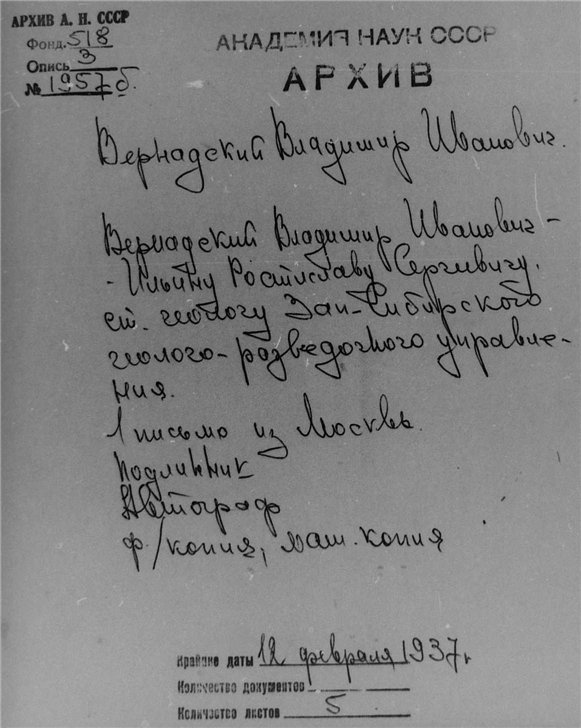 АРХИВ А. Н. СССР
Фонд. 518
Опись 3
№ 1957б.
АКАДЕМИЯ НАУК СССР
АРХИВ
Вернадский Владимир Иванович.
Вернадский Владимир Иванович -
- Ильину Ростиславу Сергеевичу,
ст. геологу Зап-Сибирского
геолого-разведочного управле-
ния.
1 письмо из Москвы.
Подлинник
Автограф
ф/копия, маш. копия
Крайние даты 12 февраля 1937г
Количество документов
Количество листов 5